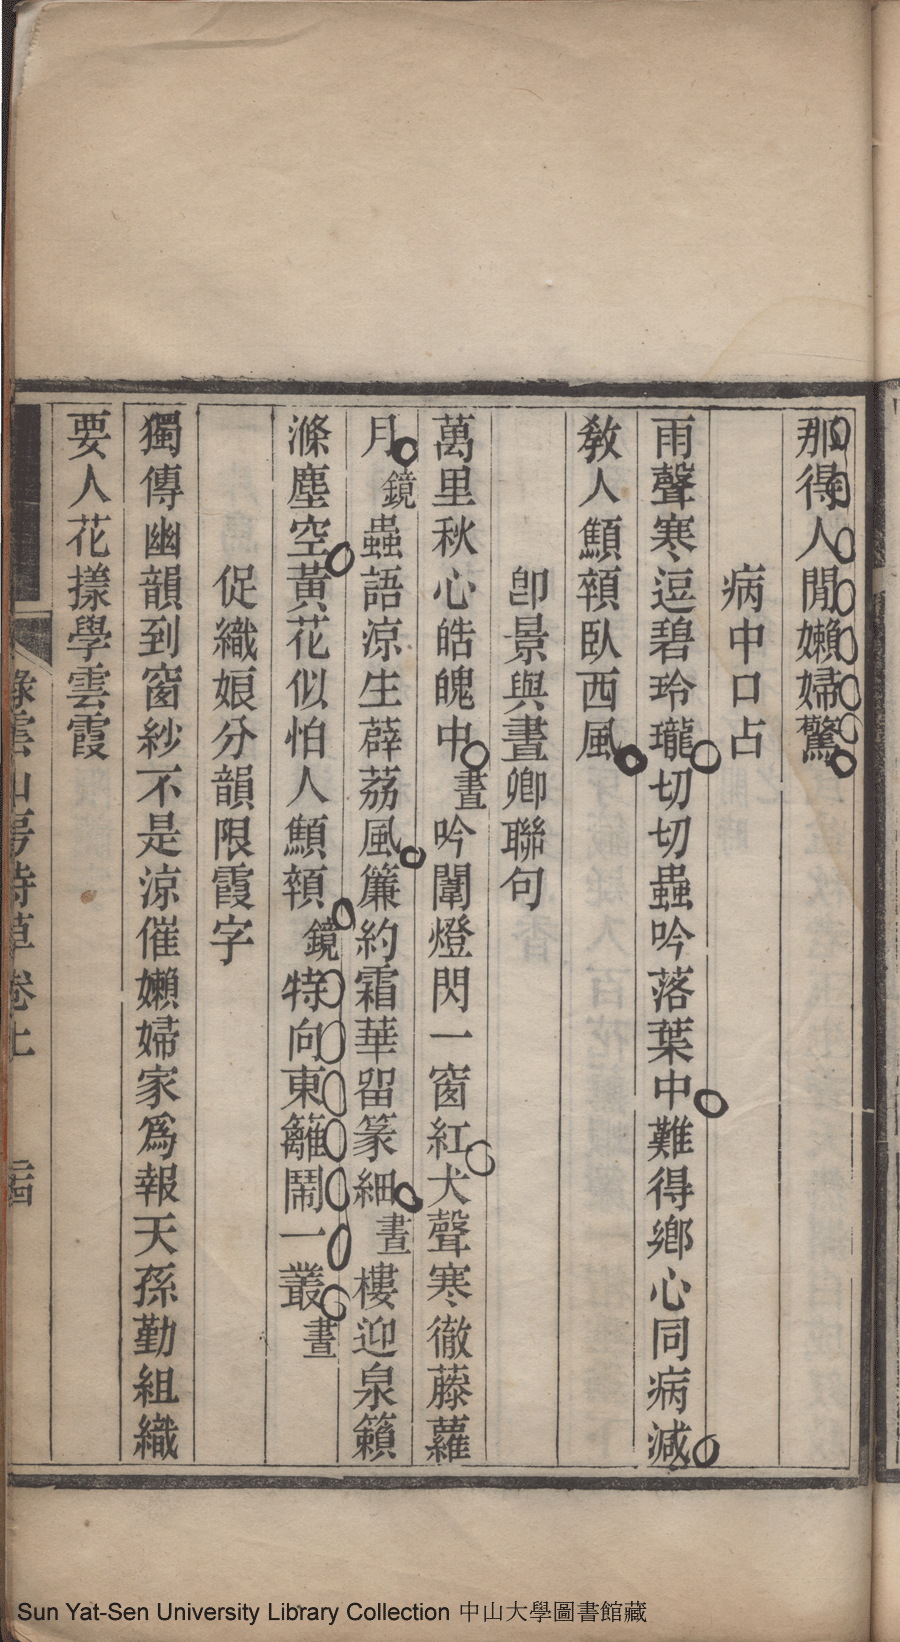 那得人閒嬾婦驚
病中口占
雨聲寒逗碧玲瓏切切蟲吟落葉中難得鄉心同病減
敎人顦顇臥西風
卽景與晝卿聯句
萬里秋心皓魄中晝吟闈燈閃一窗紅犬聲寒徹藤蘿
月鏡蟲語涼生薜荔風簾約霜華畱篆細晝樓迎泉籟
滌塵空黃花似怕人顦顇鏡特向東籬鬧一叢晝
促織娘分韻限霞字
獨傳幽韻到窗紗不是涼催嬾婦家爲報天孫勤組織
要人花㨾學雲霞
綠雲山房詩草卷上 二十四
Sun Yat-Sen University Library Collection 中山大學圖書館藏